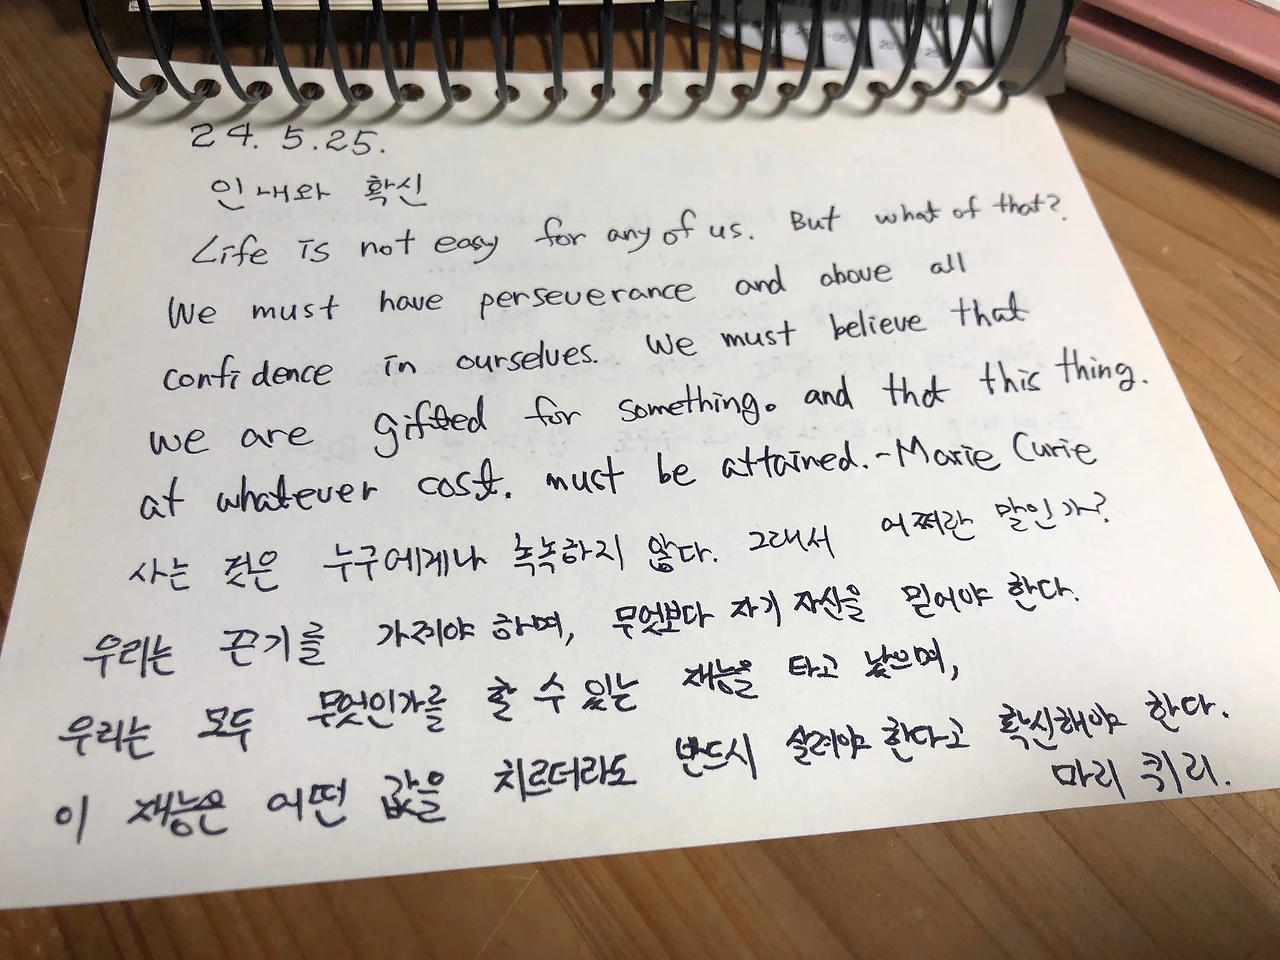 24. 5. 25.
인내와 확신
Life is not easy for any of us. But what of that?
We must have perseverance and above all
confidence in ourselves. We must believe that
we are gifted for something. and that this thing.
at whatever cost. must be attained. - Marie Curie
사는 것은 누구에게나 녹녹하지 않다. 그래서 어쩌란 말인가?
우리는 끈기를 가져야 하며, 무엇보다 자기 자신을 믿어야 한다.
우리는 모두 무엇인가를 할 수 있는 재능을 타고 났으며,
이 재능은 어떤 값을 치르더라도 반드시 살려야 한다고 확신해야 한다.
마리 퀴리.